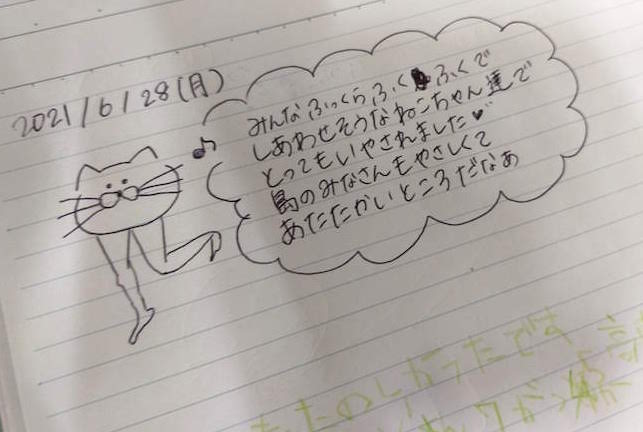 2021/6/28(月)
みんなふっくらふくふくで
しあわせそうなねこちゃん達で
とってもいやされました♥
島のみなさんもやさしくて
あたたかいところだなあ
たのしかったです